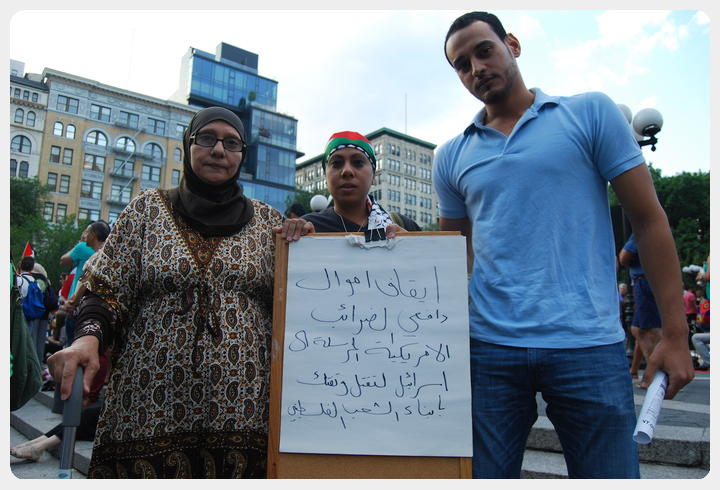 إيقاف اموال
دافعي لضرائب
الامريكية المرسلة الى
اسرائيل لتقتل وتفتك
بأبناء الشعب الفلسطيني